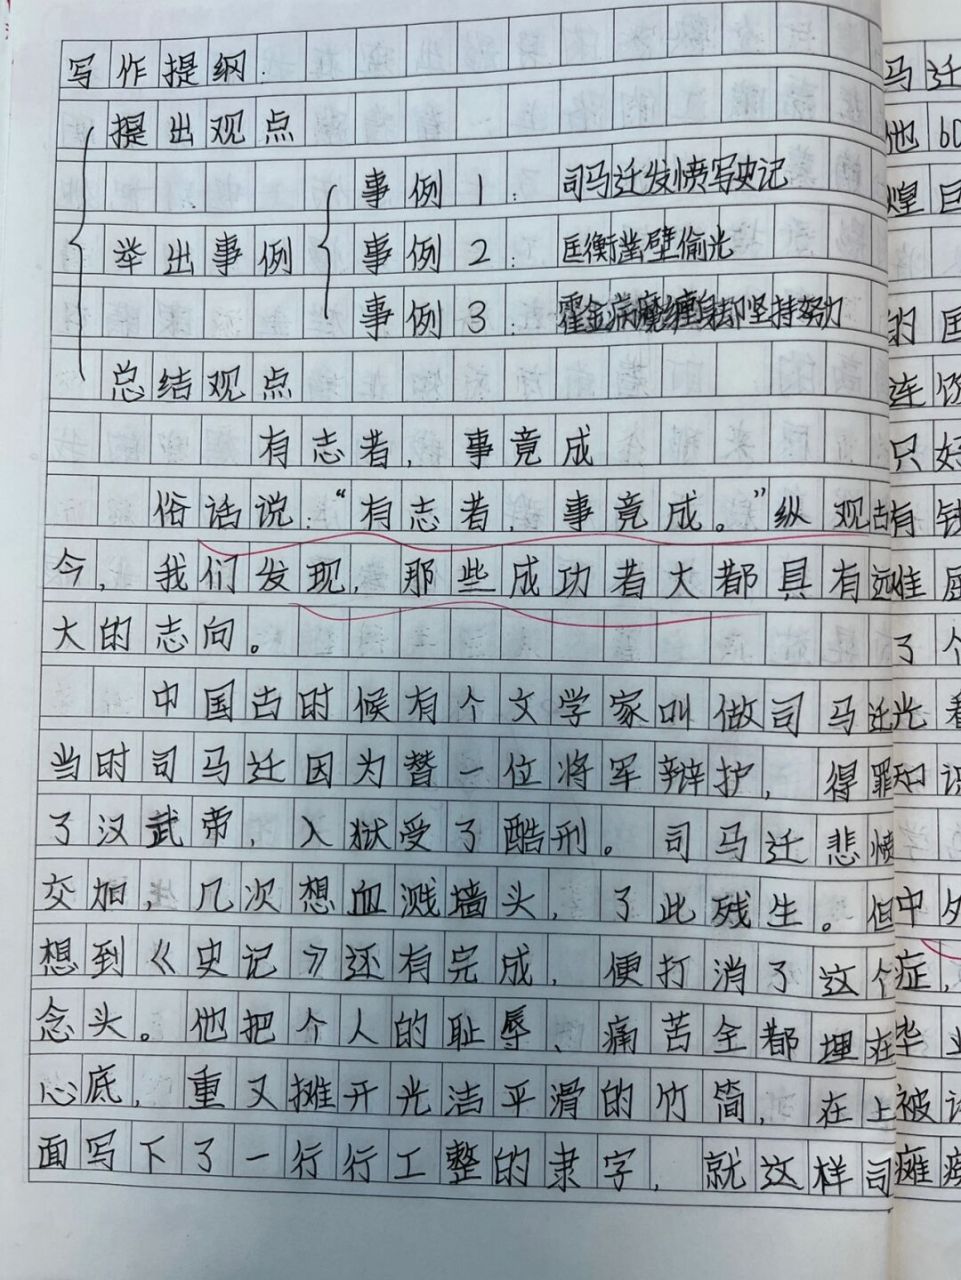 写作提纲：
提出观点
事例1：司马迁发愤写史记
举出事例 事例2：匡衡凿壁偷光
事例3：霍金病魔缠身却坚持努力
总结观点
有志者，事竟成
俗话说：“有志者，事竟成。”纵观古
今，我们发现，那些成功者大都具有远
大的志向。
中国古时候有个文学家叫做司马迁
当时司马迁因为替一位将军辩护，得罪
了汉武帝，入狱受了酷刑。司马迁悲愤
交加，几次想血溅墙头，了此残生。但
想到《史记》还有完成，便打消了这个
念头。他把个人的耻辱、痛苦全都埋在
心底，重又摊开光洁平滑的竹简，在上
面写下了一行行工整的隶字，就这样司
马迁
他60
煌巨
的匡
连
只好
有钱
难
了个
光看
知识
中
症，
毕业
被
瘫痪